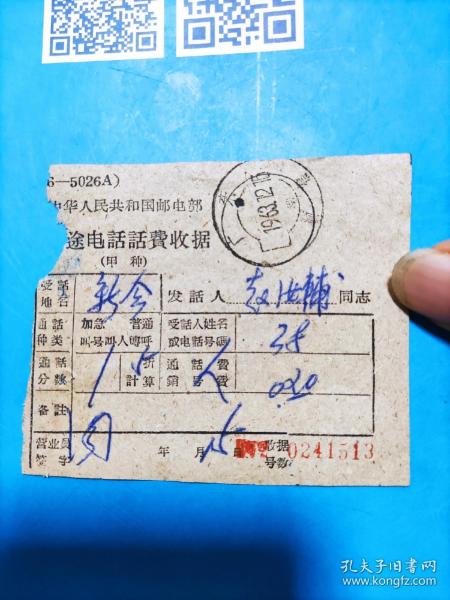 6—5026A)
中华人民共和国邮电部
途电话話費收据
(甲 种)
1963.12.1
受話地名 新会 发話人 赵 輔 同志
通話种类 加急 普通 叫号叫人傳呼 受話人姓名或电話号碼
通話分数 1 折計算 通話費銷号費 0.20
备註
营业员签字 年 月 15 日 收据号数 № 0241513
孔夫子旧书网
www.kongfz.com